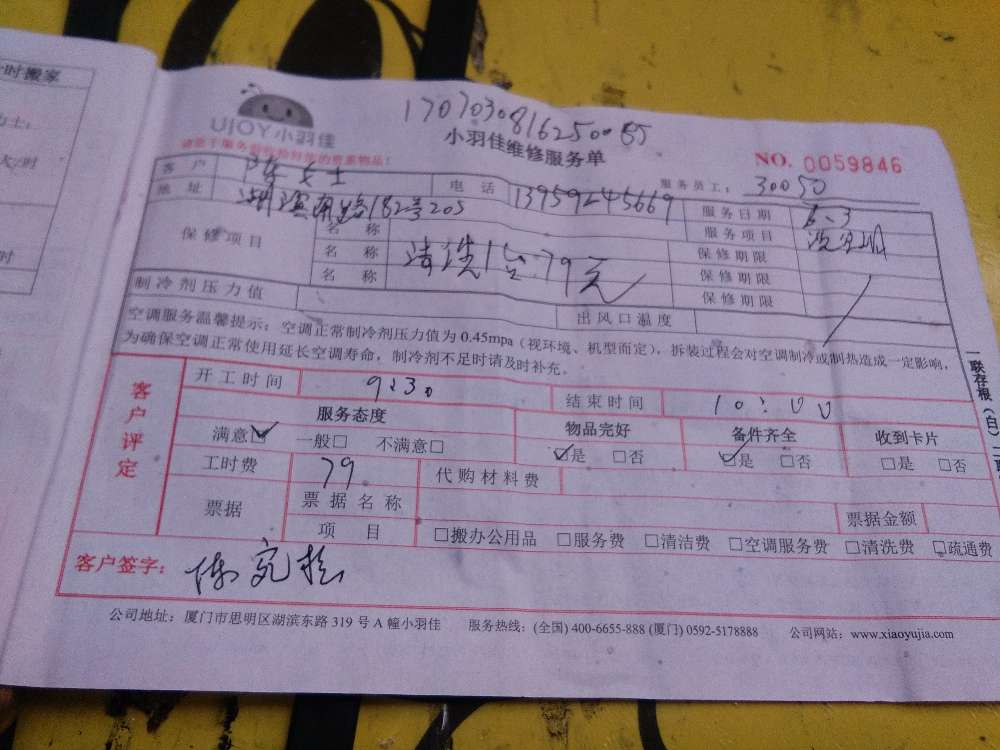 时搬家
1707030816250085
UJOY小羽佳
小羽佳维修服务单
NO. 0059846
服务员工: 30050
客户 陈女士 电话 13959245669 服务日期 6.3
地址 湖滨南路182号205 服务项目
保修项目 名称
名称 清洗1台79元 保修期限
名称 保修期限
保修期限
制冷剂压力值 出风口温度
空调服务温馨提示：空调正常制冷剂压力值为0.45mpa（视环境、机型而定），拆装过程会对空调制冷或制热造成一定影响，
为确保空调正常使用延长空调寿命，制冷剂不足时请及时补充。
一联存根（白）
客户评定
开工时间 9:30 结束时间 10:00
服务态度 物品完好 备件齐全 收到卡片
满意☑ 一般□ 不满意□ ☑是 □否 ☑是 □否 □是 □否
工时费 79 代购材料费
票据 票据名称 票据金额
项目 □搬办公用品 □服务费 □清洁费 □空调服务费 □清洗费 □疏通费
客户签字：
公司地址：厦门市思明区湖滨东路319号A幢小羽佳 服务热线：(全国) 400-6655-888 (厦门) 0592-5178888 公司网站：www.xiaoyujia.com